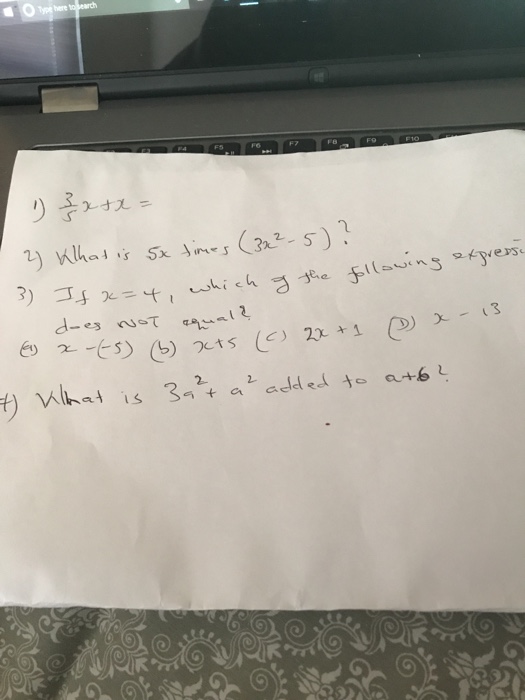 Type here to search
F4 F5 F6 F7 F8 F9 F10
1) 3/5 x + x =
2) What is 5x times (3x² - 5)?
3) If x = 4, which of the following express
does NOT equal?
(a) x - (-5) (b) x + 5 (c) 2x + 1 (D) x - 13
4) What is 3a² + a² added to a + 6?